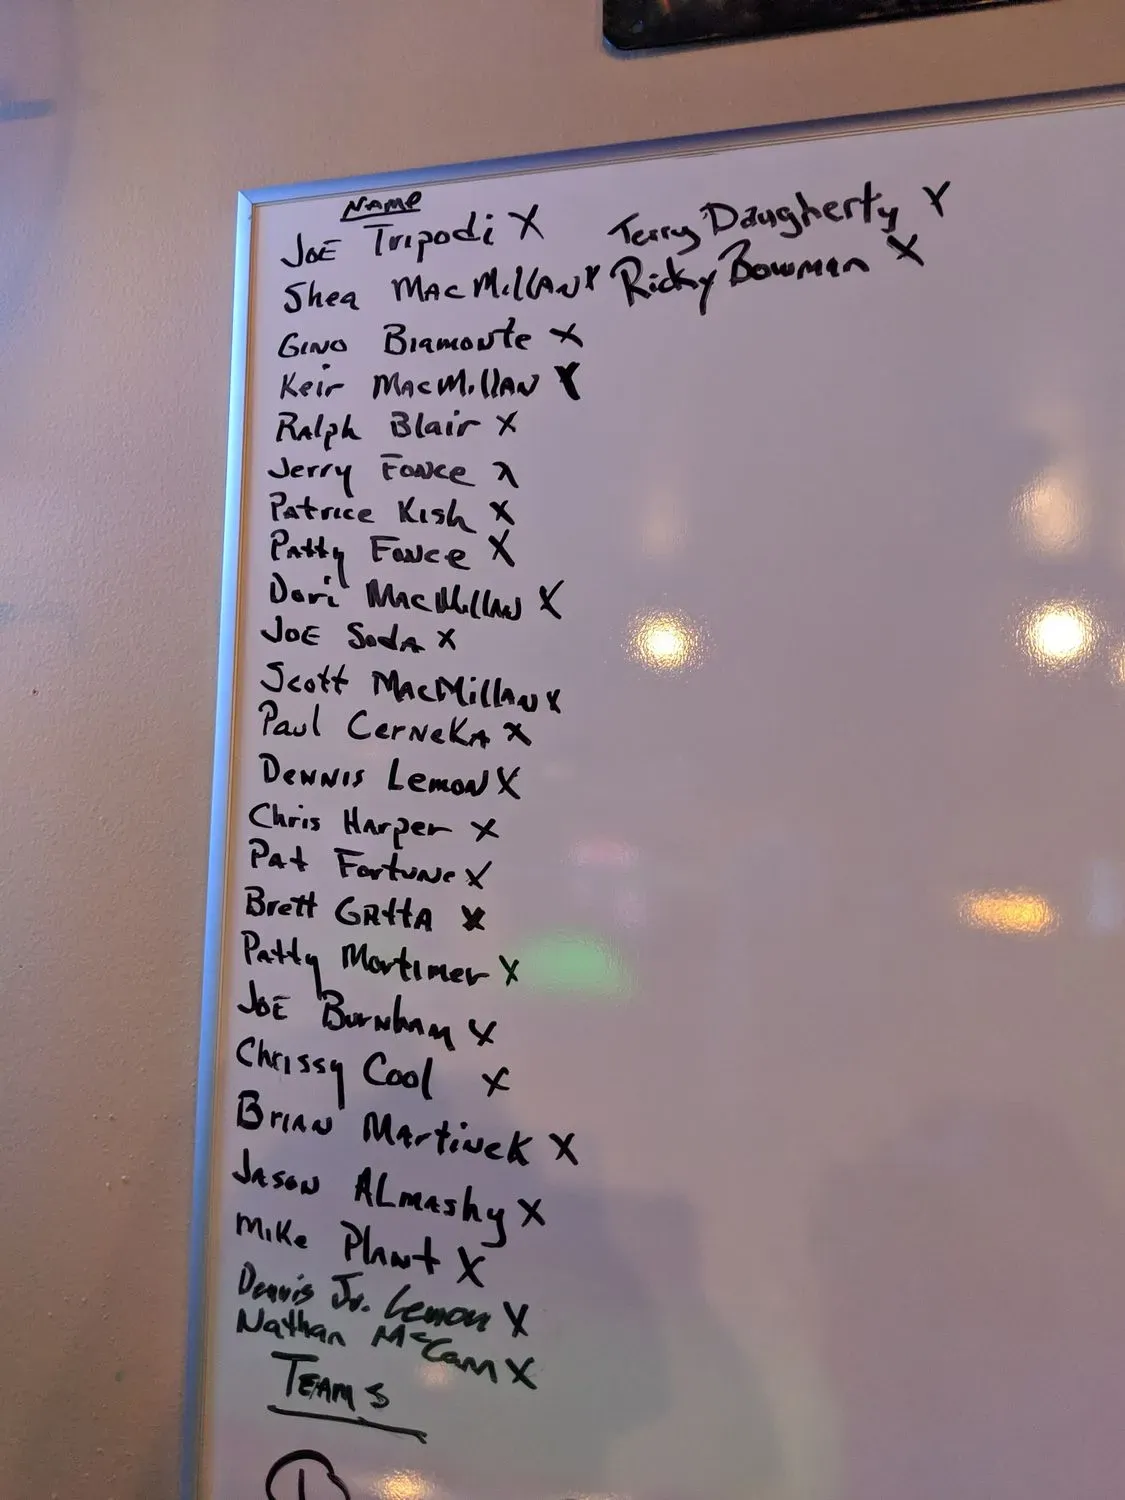 NAME
JOE Tripodi X
Shea MacMillan X
Gino Biamonte X
Keir MacMillan X
Ralph Blair X
Jerry Fonce X
Patrice Kish X
Patty Fonce X
Dori MacMillan X
JOE Soda X
Scott MacMillan X
Paul Cerneka X
Dennis Lemon X
Chris Harper X
Pat Fortune X
Brett Gatta X
Patty Mortimer X
JOE Burnham X
Chrissy Cool X
Brian Martinek X
Jason Almashy X
Mike Plant X
Dennis Jr. Lemon X
Nathan McCann X
Terry Daugherty X
Ricky Bowman X
TEAMS
1